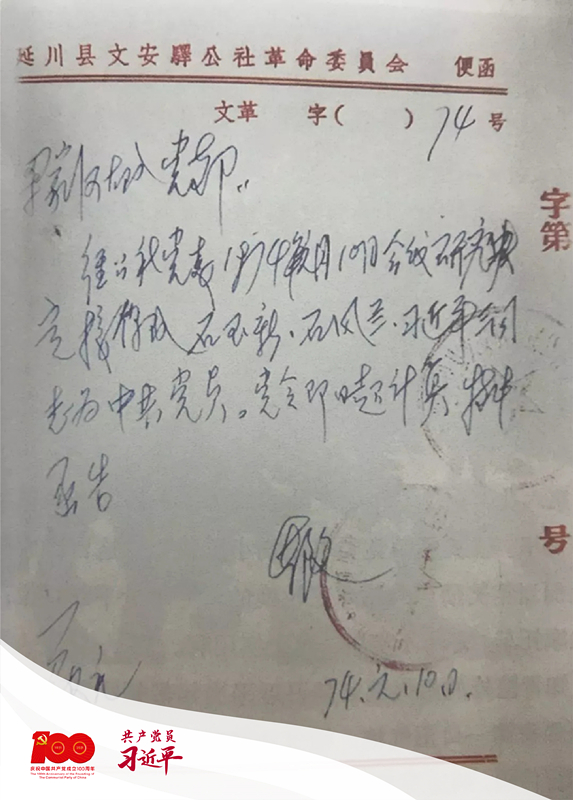 延川县文安驛公社革命委員会 便函
文革 字( ) 74 号
党
经公社党委1974年1月10日会议研究决
定接 石玉新、石凤兰、习近平 同
志为中共党员。党令即日起计算,特此
函告
74.元.10日.
字第
号
100
1921 2021
庆祝中国共产党成立100周年
The 100th Anniversary of the Founding of
The Communist Party of China
共产党员
习近平